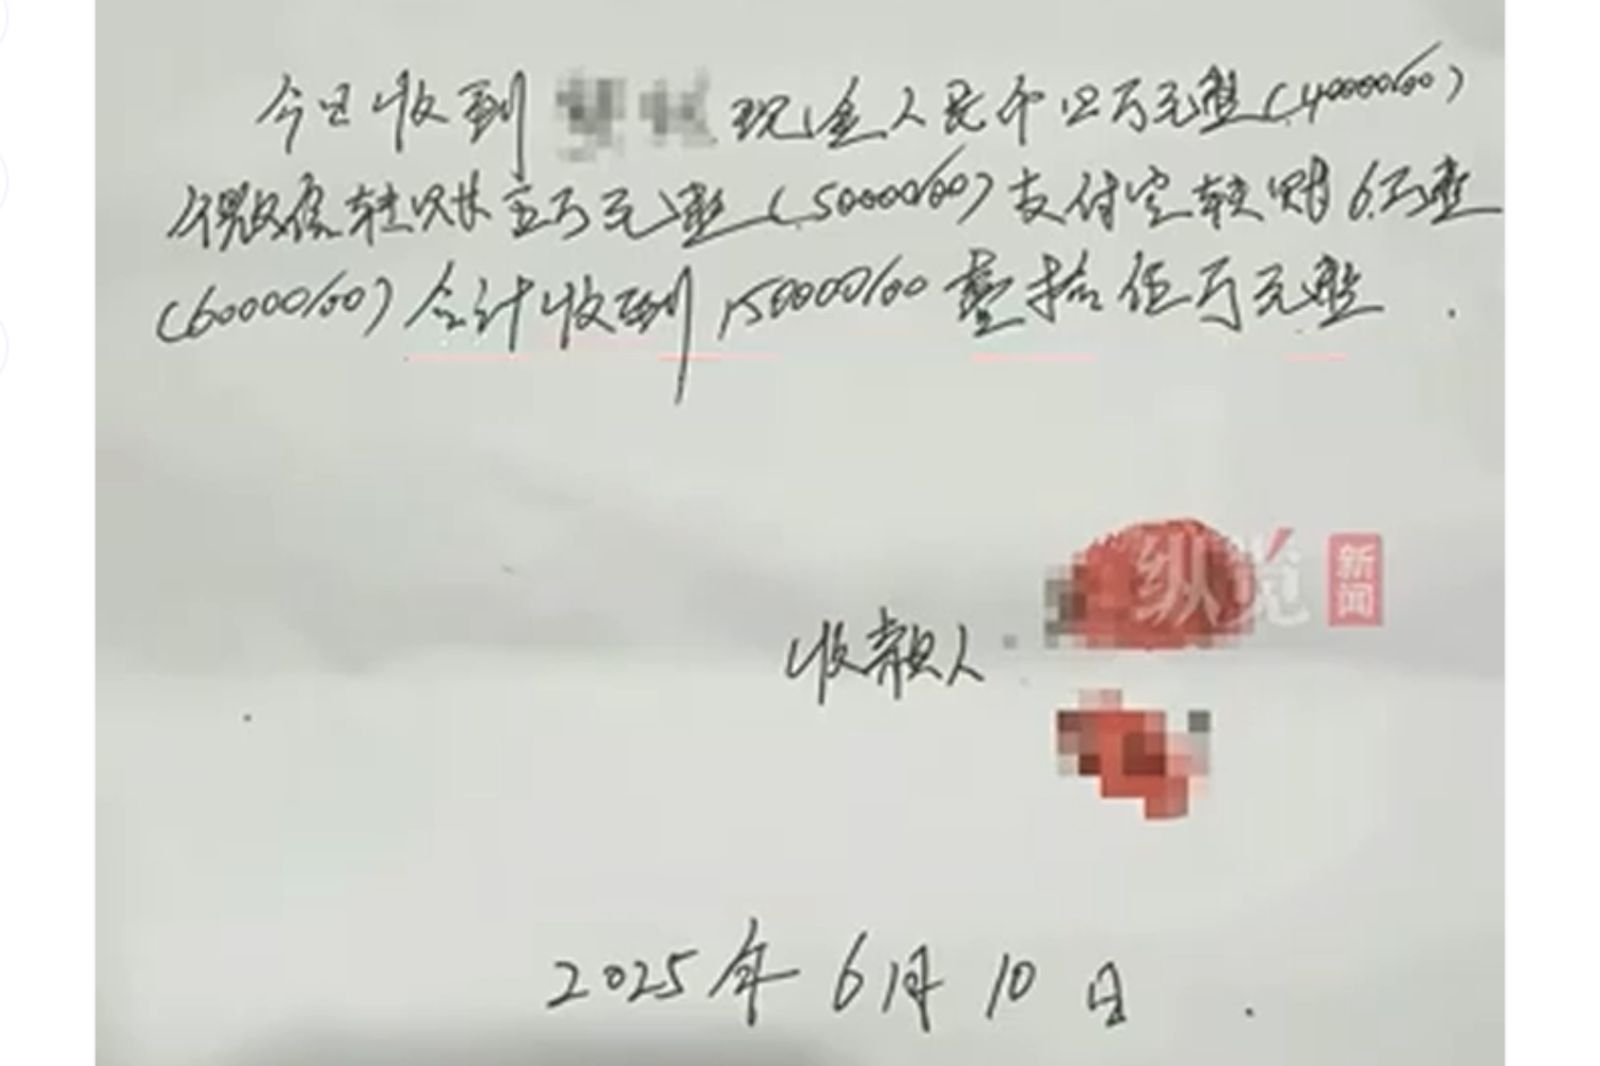 今日收到 现金人民币四万元整(40000/00)
微信转账五万元整(50000/00)支付宝转账6万整
(60000/00)合计收到150000/00壹拾伍万元整.
纵览新闻
收款人
2025年6月10日.